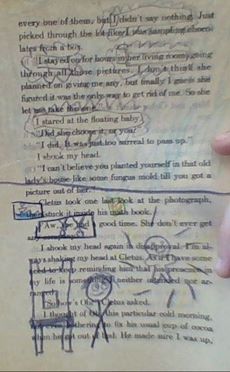 every one of them, but I didn't say nothing. Just
picked through the lot like I was sampling choco-
lates from a box.
I stayed on for hours in her living room going
through all those pictures. I don't think she
planned on giving me any, but finally I guess she
figured it was the only way to get rid of me. So she
let me take the one.
I stared at the floating baby.
"Did she choose it, or you?"
"I did. It was just too surreal to pass up."
I shook my head.
"I can't believe you planted yourself in that old
lady's house like some fungus mold till you got a
picture out of her."
Cletus took one last look at the photograph,
then stuck it inside his math book.
"Aw, she had good time. She don't ever get
any
I shook my head again in disapproval. I'm al-
ways shaking my head at Cletus. As if I have some
need to keep reminding him that his presence
my life is some neither intended nor
Cletus asked.
I thought of this particular cold morning,
to fix his usual cup of cocoa
when he got out of bed. He made sure I was up,